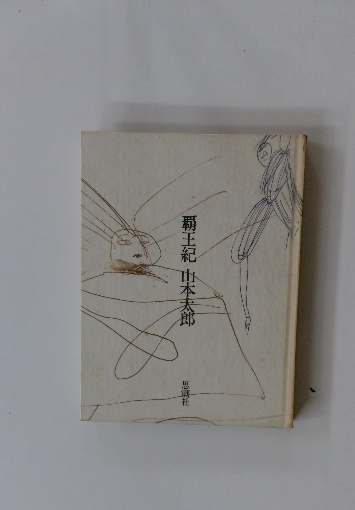 覇王紀 山本太郎
思潮社